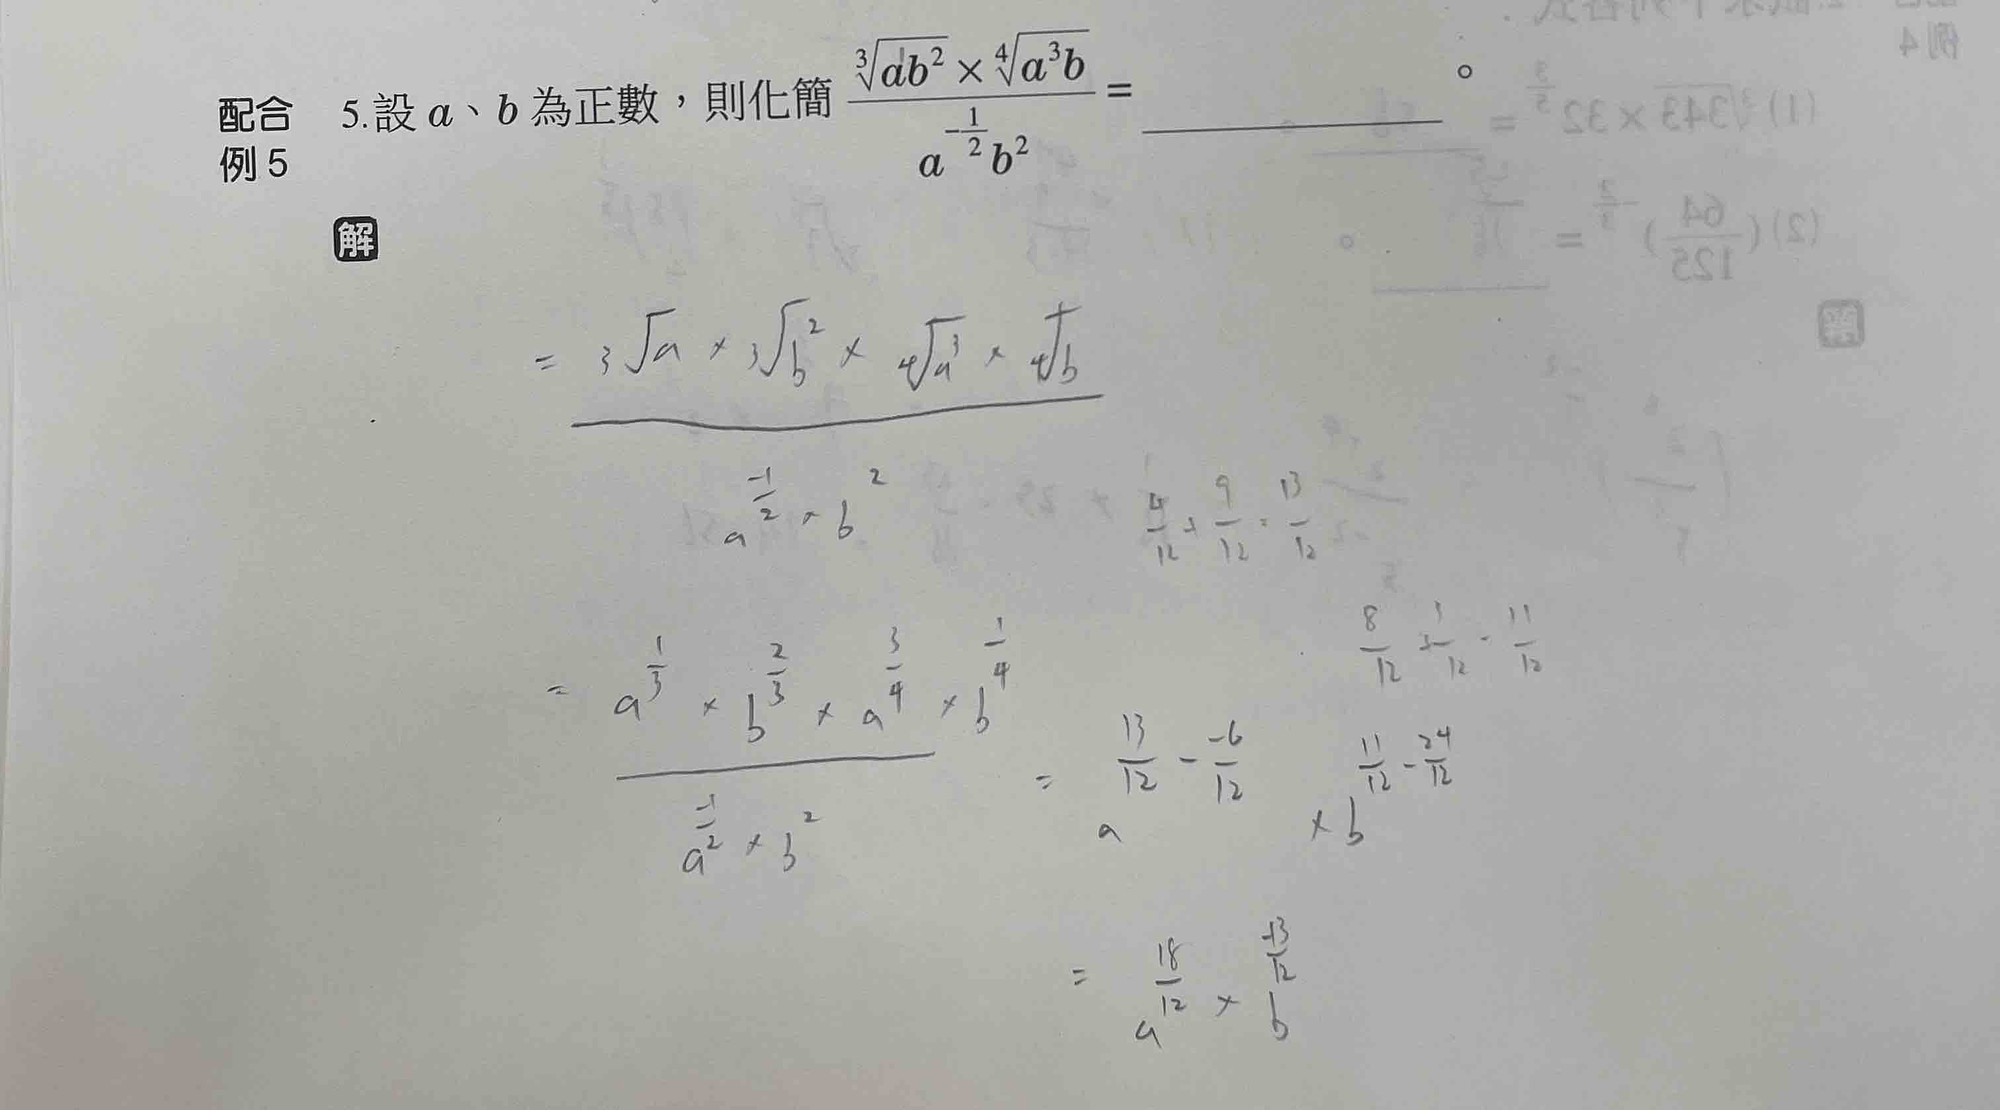 配合 5.設 a、b 為正數，則化簡 \frac{\sqrt[3]{ab^2} \times \sqrt[4]{a^3b}}{a^{-\frac{1}{2}}b^2} = ______ 。
例 5
解
= \frac{\sqrt[3]{a} \times \sqrt[3]{b^2} \times \sqrt[4]{a^3} \times \sqrt[4]{b}}{a^{\frac{-1}{2}} \times b^2}
\frac{4}{12} + \frac{9}{12} = \frac{13}{12}
\frac{8}{12} + \frac{3}{12} = \frac{11}{12}
= \frac{a^{\frac{1}{3}} \times b^{\frac{2}{3}} \times a^{\frac{3}{4}} \times b^{\frac{1}{4}}}{a^{\frac{-1}{2}} \times b^2}
= a^{\frac{13}{12} - \frac{-6}{12}} \times b^{\frac{11}{12} - \frac{24}{12}}
= a^{\frac{18}{12}} \times b^{\frac{-13}{12}}
例 4
(1) \sqrt[3]{343} \times 32^{\frac{3}{5}} = 。
(2) (\frac{64}{125}) = 。
解